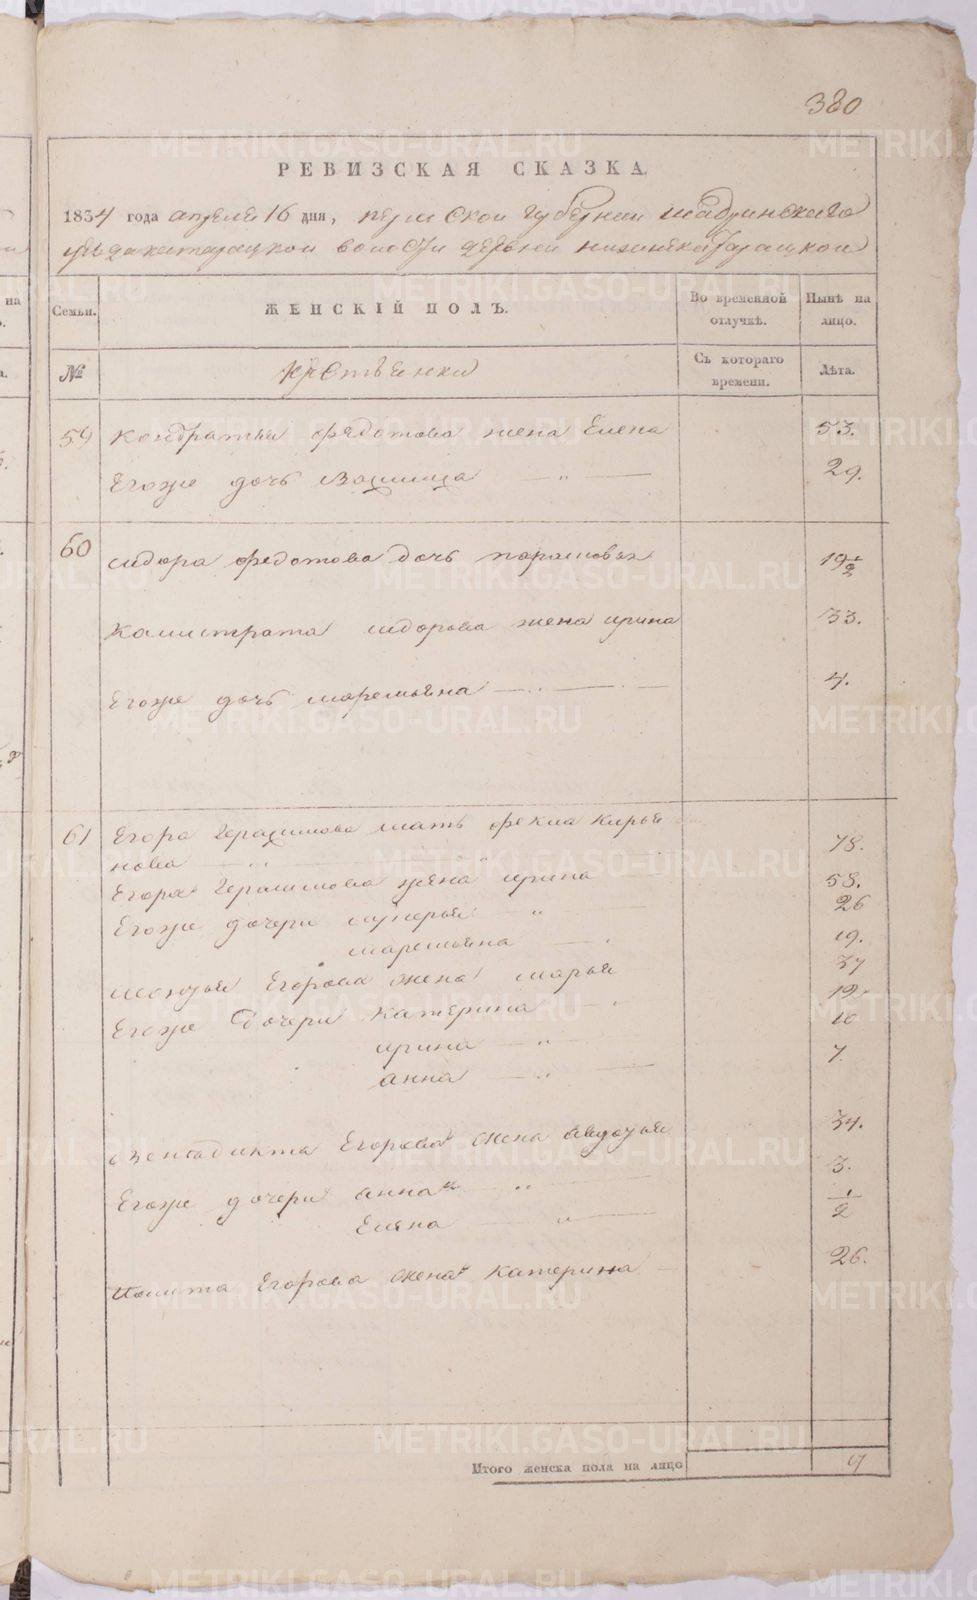 380
РЕВИЗСКАЯ СКАЗКА.
1834 года апреля 16 дня, пермской губернии шадринскаго
уезда катарацкой волости деревни нижнекатарацкой
Семьи. ЖЕНСКІЙ ПОЛЪ. Во временной отлучкѣ. Нынѣ на лицо.
№ крестьянки Съ котораго времени. Лѣта.
59 Кондратья федотова жена Елена 53.
Егоже дочь 29.
60 сидора федотова дочь парасковья 19 1/2
Калистрата сидорова жена ирина 33.
Егоже дочь маремьяна 4.
61 Егора Герасимова мать фекла Кирья
нова 78.
Егора Герасимова жена ирина 58.
Егоже дочери 26
маремьяна 19.
Егорова жена марья 37
Егоже дочери Катерина 12.
ирина 10
анна 7.
Венедикта Егорова жена авдотья 34.
Егоже дочери анна 3.
Елена 1/2
Егорова жена катерина 26.
Итого женска пола на лицо
METRIKI.GASO-URAL.RU